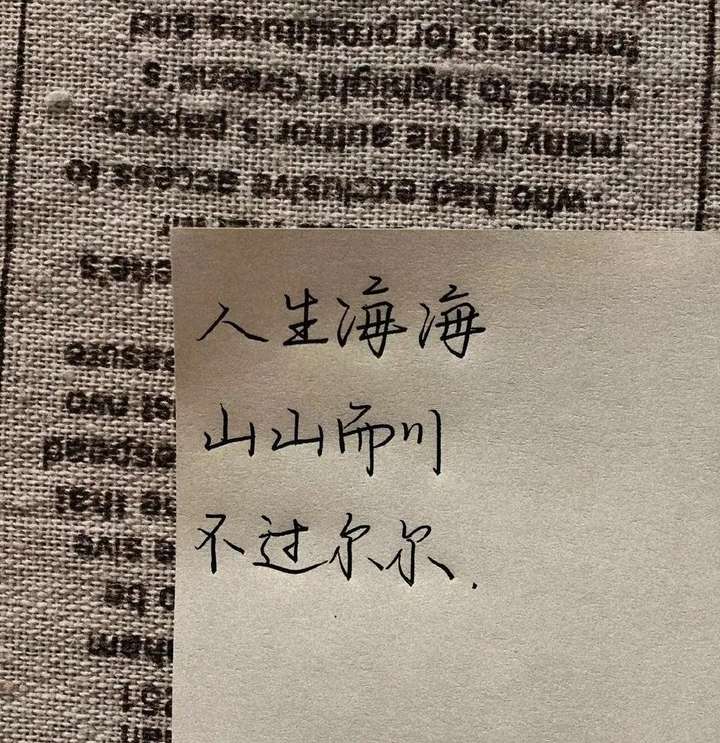 人生海海
山山而川
不过尔尔.
who had exclusive access to
many of the author's papers-
chose to highlight Greene's
fondness for prostitutes and